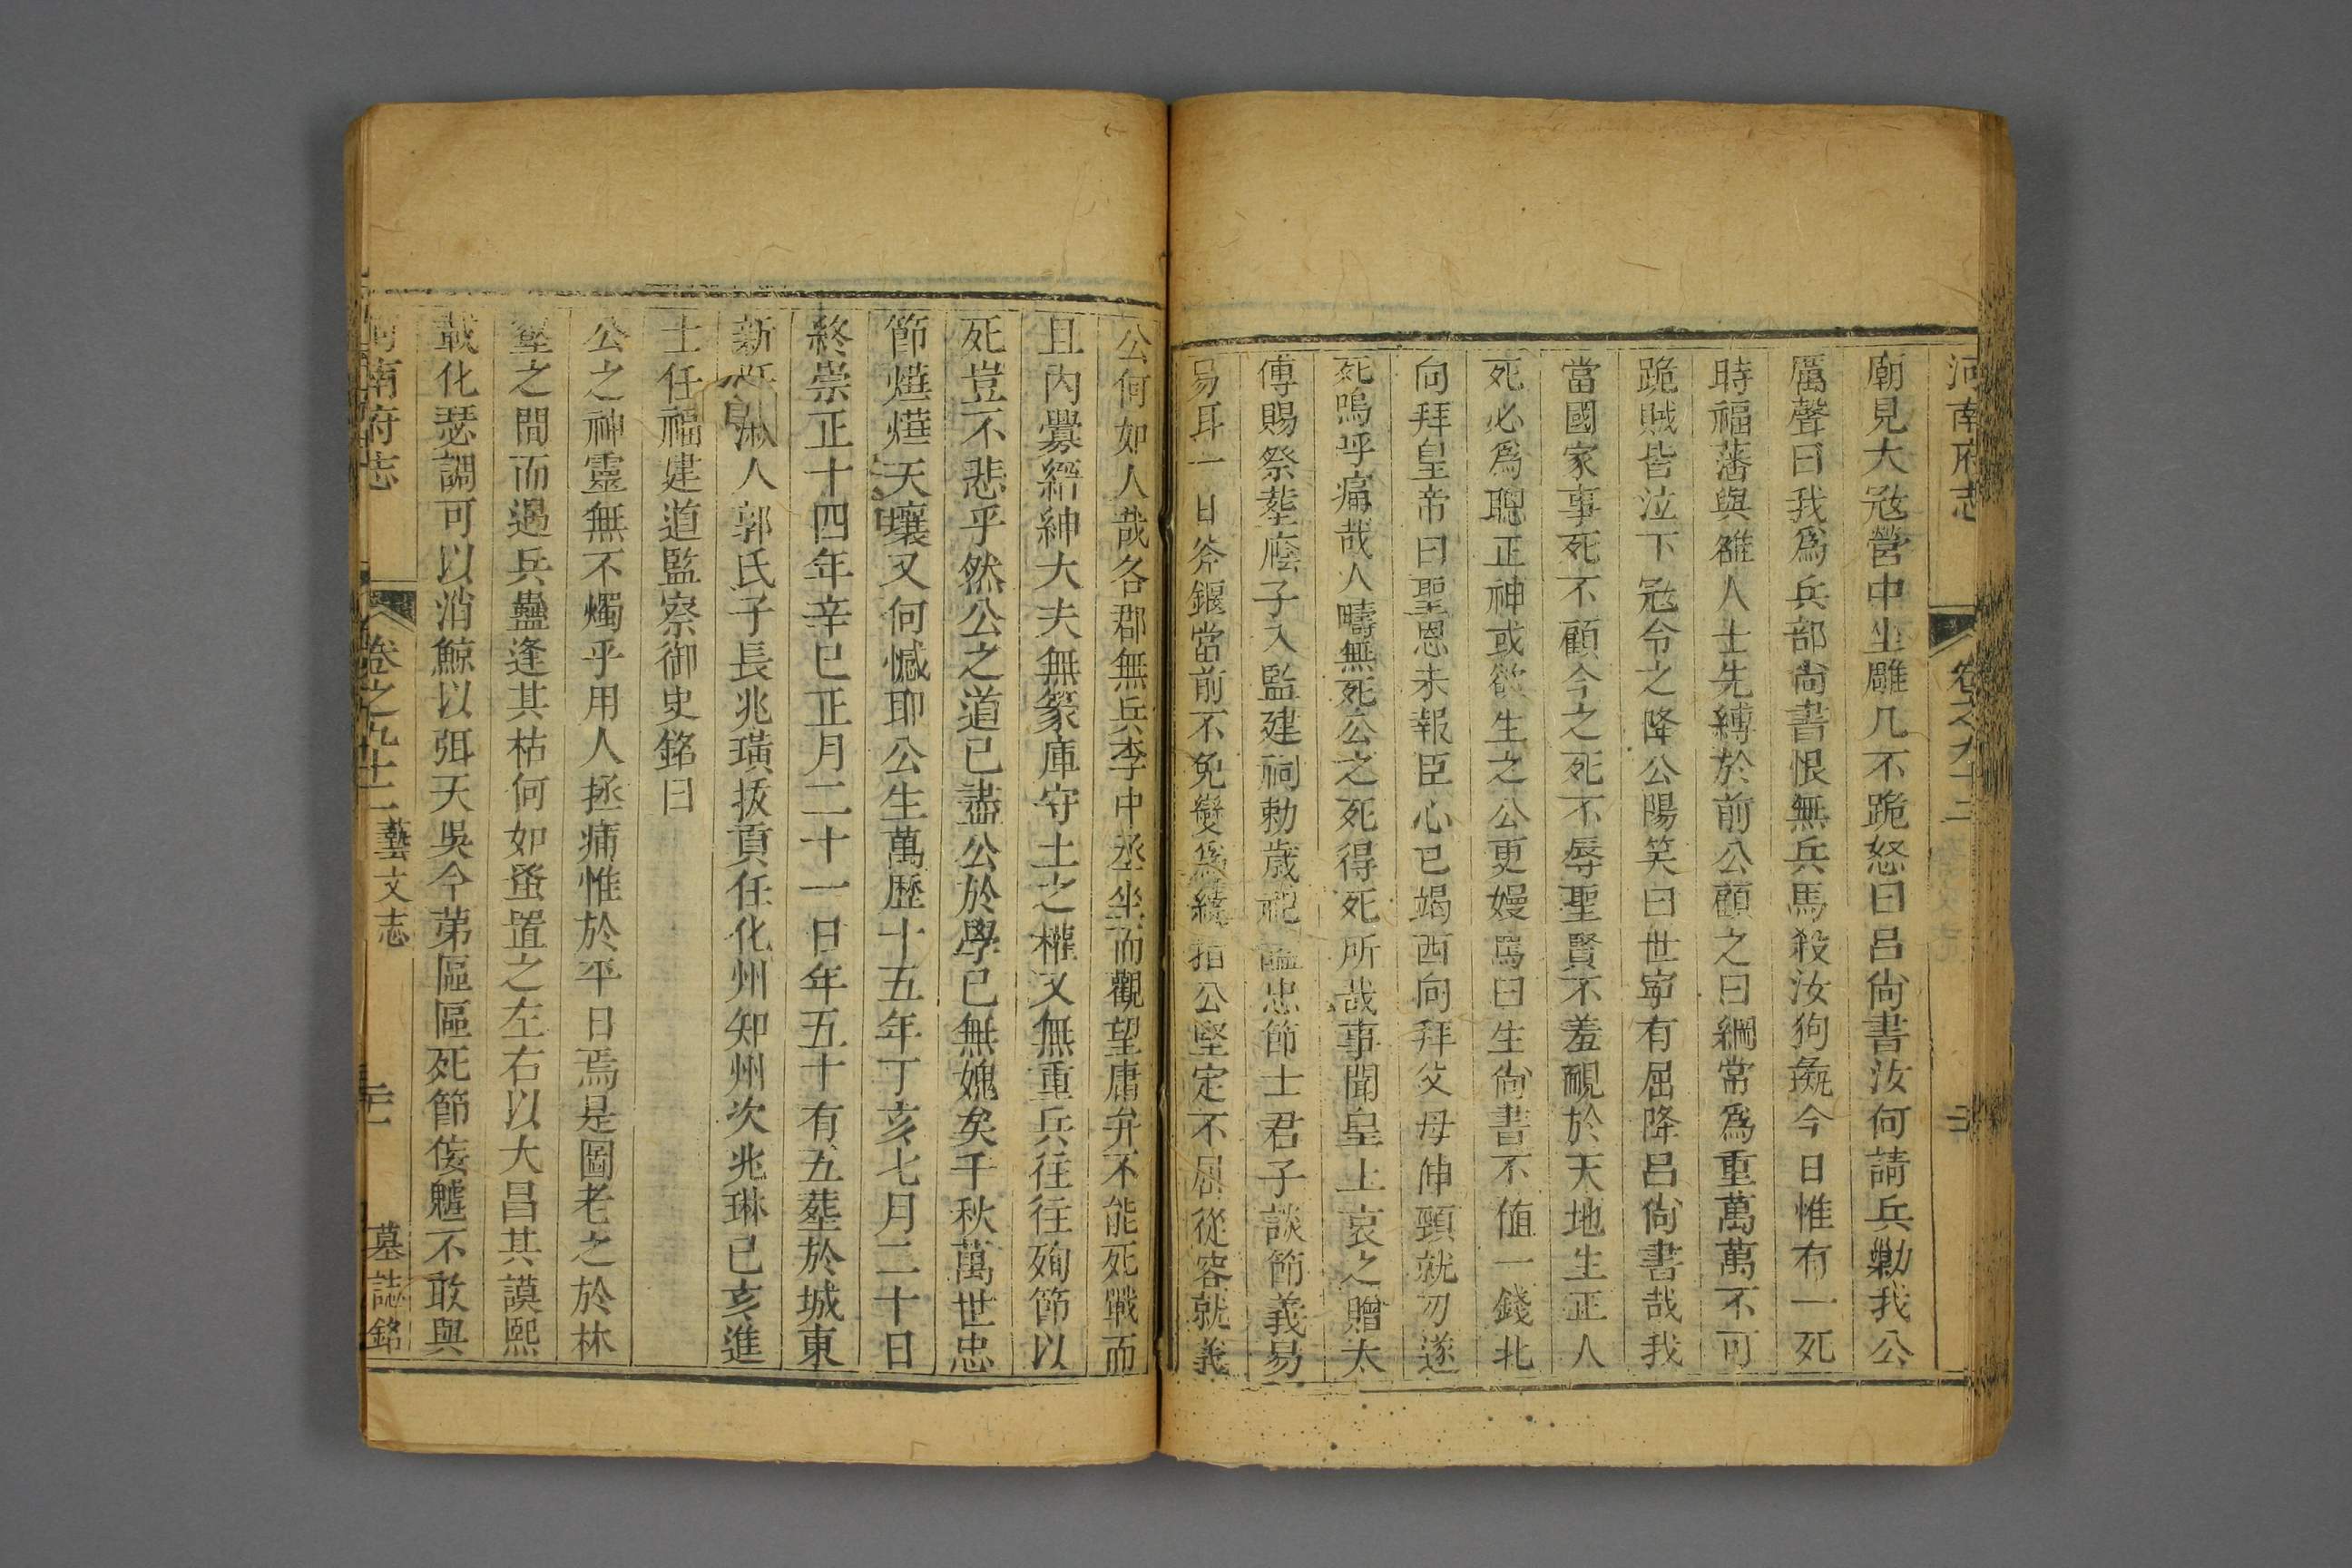 河南府志 卷之九十二
廟見大寇營中坐雕几不跪怒曰呂尚書汝何請兵勦我公
厲聲曰我爲兵部尚書恨無兵馬殺汝狗彘今日惟有一死
時福藩與雒人士先縛於前公顧之曰綱常爲重萬萬不可
跪賊皆泣下寇令之降公陽笑曰世寧有屈降呂尚書哉我
當國家事死不顧今之死不辱聖賢不羞覥於天地生正人
死必爲聰正神或欲生之公更嫚罵曰生尚書不值一錢北
向拜皇帝曰聖恩未報臣心已竭西向拜父母伸頸就刃遂
死嗚乎痛哉人疇無死公之死得死所哉事聞皇上哀之贈太
傅賜祭塟廕子入監建祠勅歲祀諡忠節士君子談節義易
易耳一日斧鑕當前不免變爲繞指公堅定不屈從容就義
公何如人哉各郡無兵李中丞坐而觀望庸弁不能死戰而
且內釁縉紳大夫無篆庫守土之權又無重兵往往殉節以
死豈不悲乎然公之道已盡公於學已無媿矣千秋萬世忠
節燁燁天壤又何憾耶公生萬歷十五年丁亥七月二十日
終崇正十四年辛巳正月二十一日年五十有五塟於城東
新 人郭氏子長兆璜拔貢任化州知州次兆琳已亥進
士任福建道監察御史銘曰
公之神靈無不燭乎用人拯痛惟於平日焉是圖老之於林
壑之間而遇兵蠱逢其枯何如蚤置之左右以大昌其謨熙
載化瑟調可以消鯨以弭天吳今第區區死節 魖不敢與
河南府志 卷之九十二 藝文志 墓誌銘